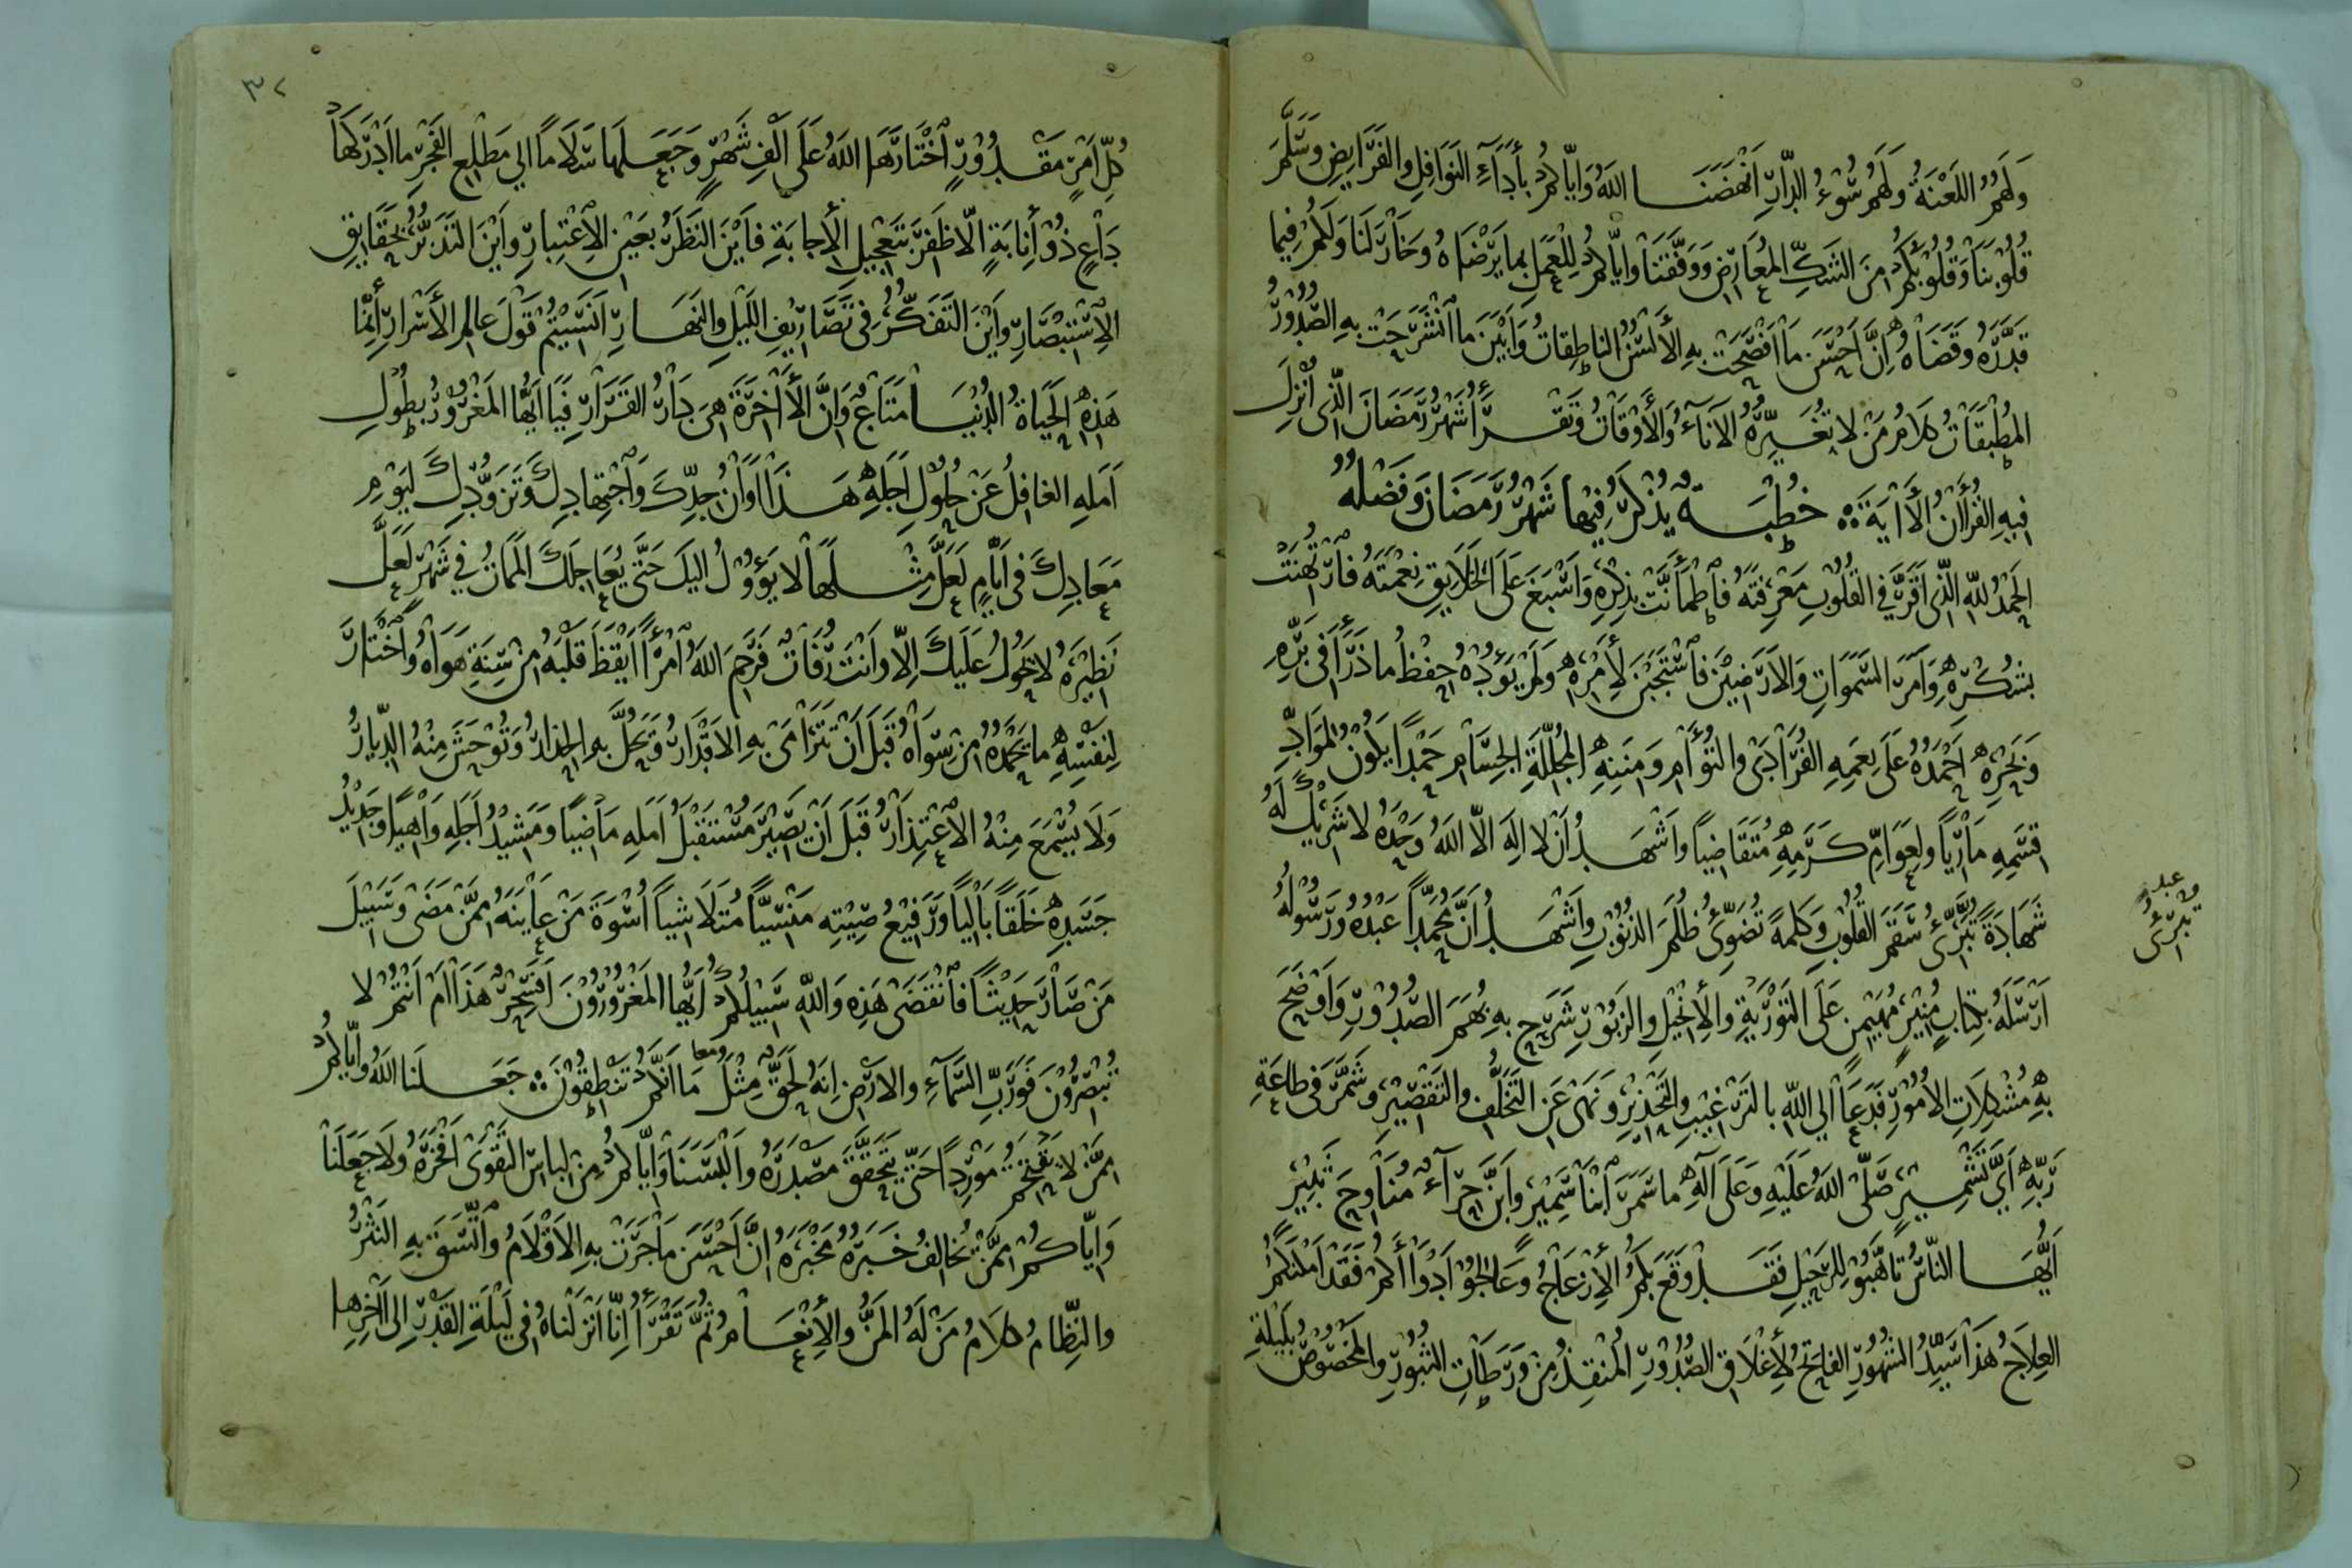 وَلَهُمُ اللَعْنَةُ وَلَهُمْ سُوْءُ الدَّارِ اَنْهَضَنَا اللهُ وَاِيَّاكُمْ بِأَدَآءِ النَوَافِلِ والفَرَايِضِ وَسَلَّمَ
قُلُوْبنَا وَقُلُوْبَكُمْ مِنَ الشَكِّ المُعَارِضِ وَوَفَّقَنَا وَاِيَّاكُمْ لِلْعَمَلِ بِمَا يَرْضَاهُ وَخَارَ لَنَا وَلَكُمْ فِيمَا
قَدَّرَهُ وَقَضَاهُ اِنَّ اَحْسَنَ مَا اَفْصَحَتْ بِهِ الأَلْسُنُ الناطِقَاتُ وَأَبْيَنَ مَا انْشَرَحَتْ بِهِ الصُّدُوْرُ
المُطْبَقَاتُ كَلَامُ مَنْ لا تُغَيِّرُهُ الآنَآءُ وَالأَوْقَاتُ وَتَقْرَأُ شَهْرُ رَمَضَانَ الَّذِى اُنْزِلَ
فِيهِ القُرْأَنُ الأَايَةَ ∴ خُطْبَةٌ يُذْكَرُ فِيْهَا شَهْرُ رَمَضَانَ وَفَضْلُهُ
الحَمْدُ للهِ الَّذِى اَقَرَّ فِي القُلُوْبِ مَعْرِفَتَهُ فَاطْمَأَنَّتْ بِذِكْرِهِ وَاَسْبَغَ عَلَى الخَلَايِقِ نِعْمَتَهُ فَارْتُهِنَتْ
بِشُكْرِهِ وَاَمَرَ السَّمَوَاتِ وَالاَرَضِيْنَ فَاسْتَجَبْنَ لِأَمْرِهِ وَلَمْ يَؤُدْهُ حِفْظُ مَا ذَرَأَ فِى بَرِّهِ
وَبَحْرِهِ اَحْمَدُهُ عَلَى نِعَمِهِ الفُرَادَى والتُؤَامِ وَمِنَنِهِ المُجَلِّلَةِ الجِسَامِ حَمْدًا يَكُوْنُ لِمَوَادِّ
قِسَمِهِ مَارِياً وَلِعَوَامِّ كَرَمِهِ مُتَقَاضِياً وَاَشْهَدُ اَنْ لا اِلَهَ اِلاَّ اللهُ وَحْدَهُ لا شَرِيْكَ لَهُ
شَهَادَةً تُبَرِّئُ سَقَمَ القُلُوْبِ وَكَلِمَةً تُضَوِّئُ ظُلَمَ الذنُوْبِ وَاَشْهَدُ اَنَّ مُحَمَّداً عَبْدُهُ وَرَسُوْلُهُ
تبرئ
اَرْسَلَهُ بِكِتَابٍ مُنِيْرٍ مُهَيْمِنٍ عَلَى التَوْرَيةِ والأِنْجِيْلِ والزَبُوْرِ شَرَحَ بِهِ بُهَمَ الصُّدُوْرِ وَاَوْضَحَ
بِهِ مُشْكِلَاتِ الاُمُوْرِ فَدَعَا اِلي اللهِ بِالتَرْغِيْبِ والتَحْذِيْرِ وَنَهَى عَنِ التَخَلُّفِ والتَقْصِيْرِ وَشَمَّرَ فِى طاعَةِ
رَبِّهِ اَىَّ تَشْمِيْرٍ صَلَّى اللهُ عَلَيْهِ وَعَلَى آلِهِ مَا سَمَرَ ابْنَا سَمِيْرٍ وَاِنَّ حِرَآءٌ مُنَاوِحَ ثَبِيْرٍ
اَيُّهَا النَّاسُ تَاَهَّبُوْ لِلرَحِيْلِ فَقَدْ وَقَعَ بِكُمُ الأِنْزِعَاجُ وَعَالِجُوْا اَدْوَأَأَكُمْ فَقَدْ اَمْكَنَكُمُ
العِلَاجُ هَذَا سَيِّدُ الشُهُوْرِ الفاتِحُ لِأَغْلَاقِ الصُّدُوْرِ المُنْقِذُ مِنْ وَرَطَاتِ الثبُوْرِ والمَخْصُوْصُ بِلَيْلَةِ
٣٢
كُلِّ اَمْرٍ مَقْدُوْرٍ اخْتَارَهَا اللهُ عَلَى اَلْفِ شَهْرٍ وَجَعَلَهَا سَلَاماً الي مَطْلِعِ الفَجْرِ ما اَدْرَكَهَا
دَاعٍ ذُوْ أِنَابَةٍ الَّا ظَفِرَ بِتَعْجِيْلِ الأِجابَةِ فَاَيْنَ النَظَرُ بِعَيْنِ الاِعْتِبارِ وَاَيْنَ التَدَبُّرُ بِحَقَايِقِ
الاِسْتِبْصَارِ وَاَيْنَ التَفَكُّرُ فِى تَصَارِيْفِ اللَيْلِ والنَهَارِ اَنَسِيْتُمْ قَوْلَ عَالِمِ الأَسْرَارِ أِنَّمَا
هَذِهِ الحَيَاةُ الدُنْيَا مَتَاعٌ وَاِنَّ الأَاخِرَةَ هِىَ دَارُ القَرَارِ فَيَا اَيُّهَا المَغْرُوْرُ بِطُوْلِ
اَمَلِهِ الغافِلُ عَنْ حُلُوْلِ اَجَلِهِ هَذَا اَوَانُ جِدِّكَ وَاجْتِهَادِكَ وَتَزَوُّدِكَ لِيَوْمِ
مَعَادِكَ فِى اَيَّامٍ لَعَلَّ مِثْلَهَا لا يَؤُوْلُ اِلَيكَ حَتَّى يُعَاجِلَكَ المَمَاتُ فِي شَهْرٍ لَعَلَّ
نَظِيْرَهُ لا يَحُوْلُ عَلَيْكَ اِلَّا وَاَنْتَ رُفَاتٌ فَرَحِمَ اللهُ امْرَأً اَيْقَظَ قَلْبَهُ مِنْ سِنَةِ هَوَاهُ وَاخْتَارَ
لِنَفْسِهِ مَا يَحْمَدُهُ مِنْ سِوَاهُ قَبْلَ اَنْ تَتَرَامَى بِهِ الاَقْدَارُ وَتَحِلَّ بِهِ الحِذارُ وَتُوْحَشَ مِنْهُ الدِّيَارُ
وَلَا يُسْمَعَ مِنْهُ الاِعْتِذَارُ قَبْلَ اَنْ يَصِيْرَ مُسْتَقْبَلُ اَمَلِهِ مَاضِياً وَمَشِيْدُ اَجَلِهِ وَاهِياً وَجَدِيْدُ
جَسَدِهِ خَلَقاً بَالِياً وَرَفِيْعُ صِيْتِهِ مَنْسِيًّا مُتَلَاشِياً اُسْوَةَ مَنْ عايَنَهُ مِمَّنْ مَضَى وَسَبِيْلَ
مَنْ صَارَ حَدِيْثاً فَانْقَضَى هَذِهِ وَاللهِ سَبِيْلُكُمْ اَيُّهَا المَغْرُوْرُوْنَ اَفَسِحْرٌ هَذَا اَمْ اَنْتُمْ لا
تُبْصِرُوْنَ فَوَرَبِّ السَّمَآءِ وَالاَرْضِ اِنَّهُ لَحَقٌّ مِثْلَ مَا اَنَّكُمْ تَنْطِقُوْنَ ∴ جَعَلَنَا اللهُ وَاِيَّاكُمْ
معا
مِمَّنْ لا يَقْتَحِمُ مَوْرِداً حَتَّى يَتَحَقَّقَ مَصْدَرَهُ وَاَلْبَسَنَا وَاِيَّاكُمْ مِنْ لِبَاسِ التَقْوَى اَفْخَرَهُ وَلَا جَعَلَنَا
وَاِيَّاكُمْ مِمَّنْ يُخَالِفُ خَبَرُهُ مَخْبَرَهُ اِنَّ اَحْسَنَ مَا جَرَتْ بِهِ الاَقْلَامُ وَاتَّسَقَ بِهِ النَثْرُ
والنِّظَامُ كَلَامُ مَنْ لَهُ المَنُّ والأِنْعَامُ ثُمَّ تَقْرَأُ اِنَّا اَنْزَلْنَاهُ فِي لَيْلَةِ القَدْرِ اِلَى اَاخِرِهَا